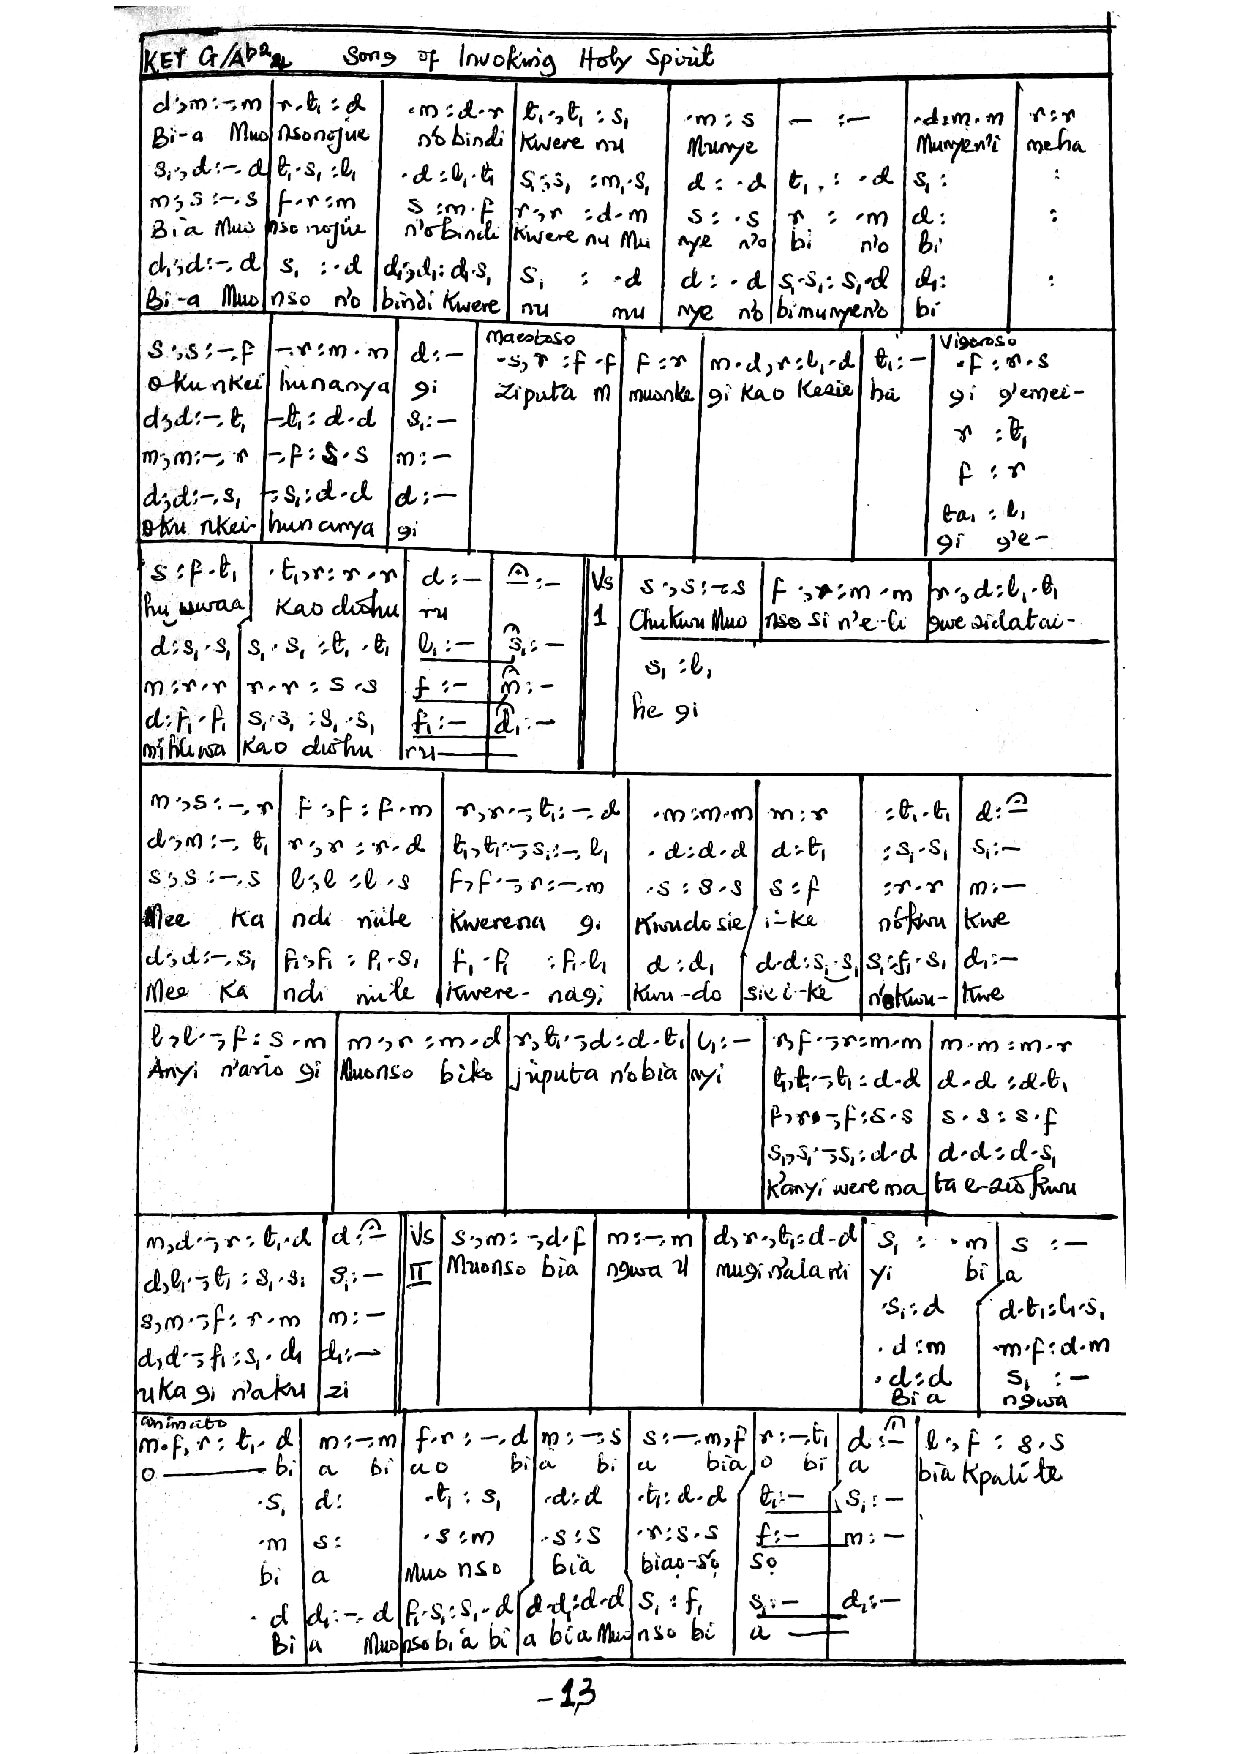 KEY G/Ab 2/4 Song of Invoking Holy Spirit
d:,m:-.m | r.t₁:d | .m:d.r | t₁.,t₁:s₁ | .m:s | -:- | .d:m.m | r:r
Bi-a Muo nsonojue n'o bindi Kwere nu Munye Munyen'i meha
s₁.,d:-.d | t₁.s₁:l₁ | .d:l₁.t₁ | s₁.,s₁:m₁.s₁ | d:.d | t₁,:.d | s₁: | :
m.,s:-.s | f.r:m | s:m.f | r.,r:d.m | s:.s | r:.m | d: | :
Bia Muo nso nojue n'o bindi Kwere nu Mu nye n'o bi n'o Bi
d₁.,d:-.d | s₁:.d | d₁.,d₁:d₁.s₁ | s₁:.d | d:.d | s₁.s₁:s₁.d | d₁: | :
Bi-a Muo nso n'o bindi Kwere nu mu nye n'o bimunyen'o bi
Maestoso Vigoroso
s.,s:-.f | -.r:m.m | d:- | .s,r:f.f | f:r | m.d,r:l₁.d | t₁:- | .f:r.s
oku nkei hunanya gi Ziputa m muonke gi kao Kesie ha gi g'emei-
d.,d:-.t₁ | -.t₁:d.d | s₁:- | r:t₁
m.,m:-.r | -.f:s.s | m:- | f:r
d.,d:-.s₁ | -.s₁:d.d | d:- | ta₁:l₁
oku nkei- hunanya gi gi g'e-
s:f.t₁ | .t₁,r:r.r | d:- | :- | Vs 1 | s.,s:-.s | f.,r:m.m | r.,d:l₁.t₁
hu uwaa kao dishu ru Chukwu Muo nso si n'e-li gwe sidatai-
d:s₁.s₁ | s₁.s₁:t₁.t₁ | l₁:- | s₁:- | s₁:l₁
m:r.r | r.r:s.s | f:- | m:-
he gi
d:f₁.f₁ | s₁.s₁:s₁.s₁ | f₁:- | d₁:-
mihuwa kao dishu ru
m.,s:-.r | f.,f:f.m | r,r.-,t₁:-.d | .m:m.m | m:r | :t₁.t₁ | d:-
d.,m:-.t₁ | r.,r:r.d | t₁,t₁.-,s₁:-.l₁ | .d:d.d | d:t₁ | :s₁.s₁ | s₁:-
s.,s:-.s | l.,l:l.s | f,f.-,r:-.m | .s:s.s | s:f | :r.r | m:-
Mee Ka ndi niile Kwerena gi Kwudosie i-ke n'okwu Kwe
d.,d:-.s₁ | f₁.,f₁:f₁.s₁ | f₁.f₁:f₁.l₁ | d:d₁ | d.d:s₁.s₁ | s₁:f₁.s₁ | d₁:-
Mee Ka ndi niile Kwere- nagi Kwu-do sie i-ke n'okwu- Kwe
l,l.-,f:s.m | m.,r:m.d | r,t₁.-,d:d.t₁ | l₁:- | r,f.-,r:m.m | m.m:m.r
Anyi n'ario gi Muonso biko juputa n'obia nyi t₁,t₁.-,t₁:d.d | d.d:d.t₁
f,r.-,f:s.s | s.s:s.f
s₁,s₁.-,s₁:d.d | d.d:d.s₁
K'anyi were ma ta e-zi okwu
m,d.-,r:t₁.d | d:- | Vs II | s.,m:-,d.f | m:-.m | d,r.,t₁:d.d | s₁:.m | s:-
d,l₁.-,t₁:s₁.s₁ | s₁:- | Muonso bia ngwa u mugi n'ala ni yi bi a
s,m.-,f:r.m | m:- | .s₁:d | d.t₁:l₁.s₁
d,d.-,f₁:s₁.d₁ | d₁:- | .d:m | .m.f:d.m
.d:d | s₁:-
uka gi n'aku zi Bia ngwa
animato
m.f,r:t₁.d | m:-.m | f.r:-.d | m:-.s | s:-.m,f | r:-.t₁ | d:- | l.,f:s.s
o bi a bi ao bi a bi a bia o bi a bia Kpali te
.s₁ | d: | .t₁:s₁ | .d:d | .t₁:d.d | t₁:- | s₁:-
.m | s: | .s:m | .s:s | .r:s.s | f:- | m:-
bi a Muo nso bia biaọ-sọ sọ
.d | d₁:-.d | f₁.s₁:s₁.d | d.d₁:d.d | s₁:f₁ | s₁:- | d₁:-
Bi a Muo nso bia bi a bia Muo nso bi a
-13